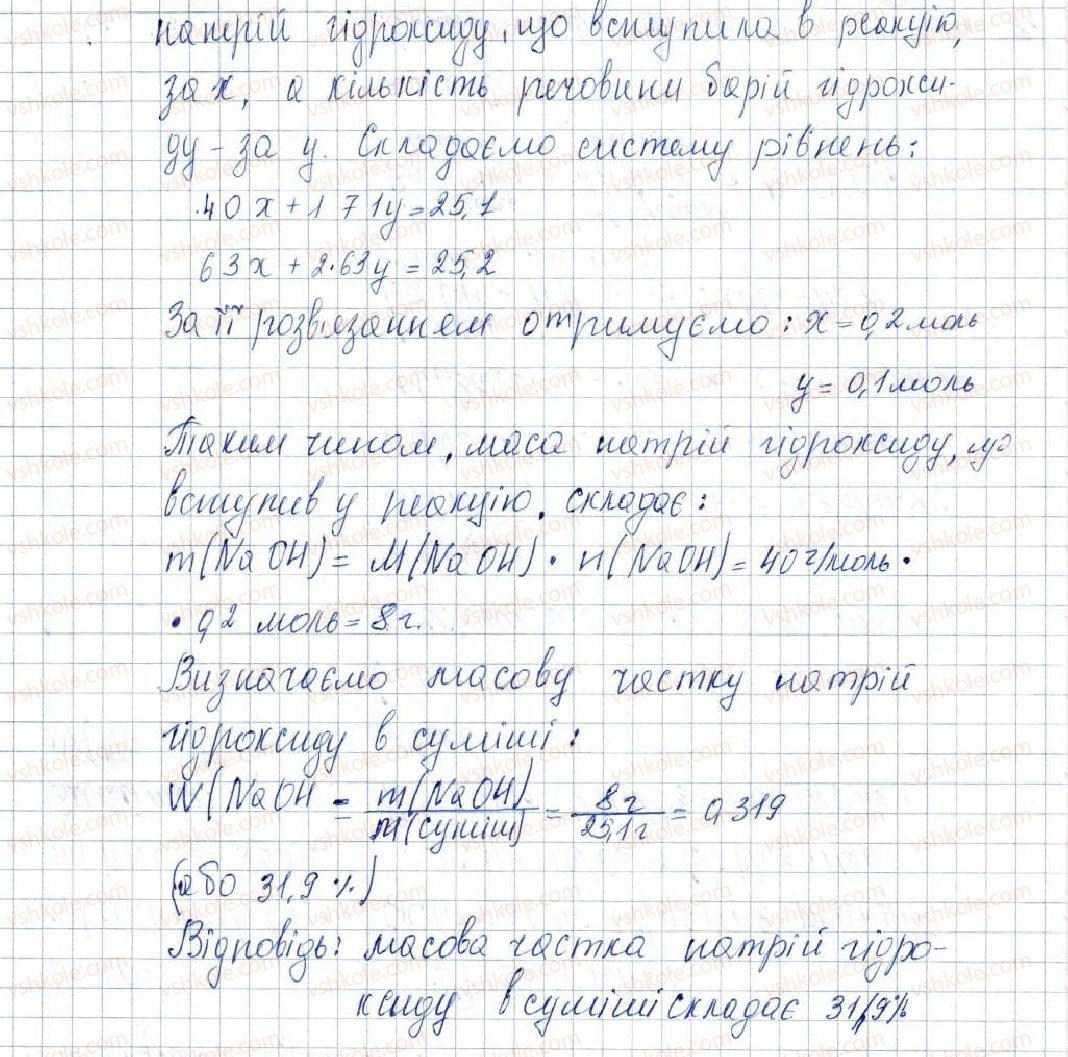 натрій гідроксиду, що вступила в реакцію,
за x, а кількість речовини барій гідрокси-
ду - за y. Складаємо систему рівнень:
40x + 171y = 25,1
63x + 2·63y = 25,2
За її розв'язанням отримуємо: x = 0,2 моль
y = 0,1 моль
Таким чином, маса натрій гідроксиду, що
вступив у реакцію, складає:
m(NaOH) = M(NaOH) · n(NaOH) = 40 г/моль ·
· 0,2 моль = 8 г.
Визначаємо масову частку натрій
гідроксиду в суміші:
W(NaOH = m(NaOH)/m(суміші) = 8 г/25,1 г = 0,319
(або 31,9 %)
Відповідь: масова частка натрій гідро-
ксиду в суміші складає 31,9%